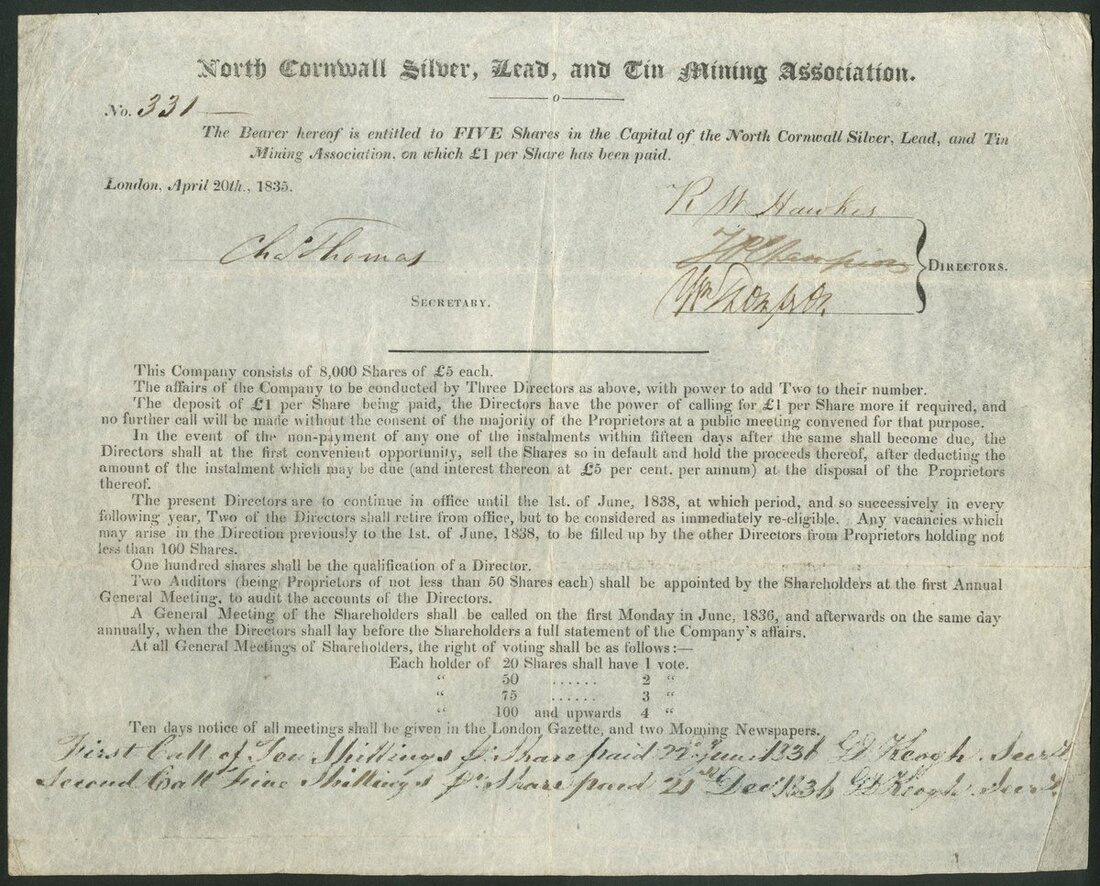 North Cornwall Silver, Lead, and Tin Mining Association.
No. 331
The Bearer hereof is entitled to FIVE Shares in the Capital of the North Cornwall Silver, Lead, and Tin
Mining Association, on which £1 per Share has been paid.
London, April 20th., 1835.
R W Hawkes
Chas Thomas
DIRECTORS.
SECRETARY.
This Company consists of 8,000 Shares of £5 each.
The affairs of the Company to be conducted by Three Directors as above, with power to add Two to their number.
The deposit of £1 per Share being paid, the Directors have the power of calling for £1 per Share more if required, and
no further call will be made without the consent of the majority of the Proprietors at a public meeting convened for that purpose.
In the event of the non-payment of any one of the instalments within fifteen days after the same shall become due, the
Directors shall at the first convenient opportunity, sell the Shares so in default and hold the proceeds thereof, after deducting the
amount of the instalment which may be due (and interest thereon at £5 per cent. per annum) at the disposal of the Proprietors
thereof.
The present Directors are to continue in office until the 1st. of June, 1838, at which period, and so successively in every
following year, Two of the Directors shall retire from office, but to be considered as immediately re-eligible. Any vacancies which
may arise in the Direction previously to the 1st. of June, 1838, to be filled up by the other Directors from Proprietors holding not
less than 100 Shares.
One hundred shares shall be the qualification of a Director.
Two Auditors (being Proprietors of not less than 50 Shares each) shall be appointed by the Shareholders at the first Annual
General Meeting, to audit the accounts of the Directors.
A General Meeting of the Shareholders shall be called on the first Monday in June, 1836, and afterwards on the same day
annually, when the Directors shall lay before the Shareholders a full statement of the Company's affairs.
At all General Meetings of Shareholders, the right of voting shall be as follows:—
Each holder of 20 Shares shall have 1 vote.
" 50 ...... 2 "
" 75 ...... 3 "
" 100 and upwards 4 "
Ten days notice of all meetings shall be given in the London Gazette, and two Morning Newspapers.
First Call of Ten Shillings pr Share paid 22 June 1836 GD Keogh Secrty
Second Call Five Shillings pr Share paid 21st Decr 1836 GD Keogh Secrty